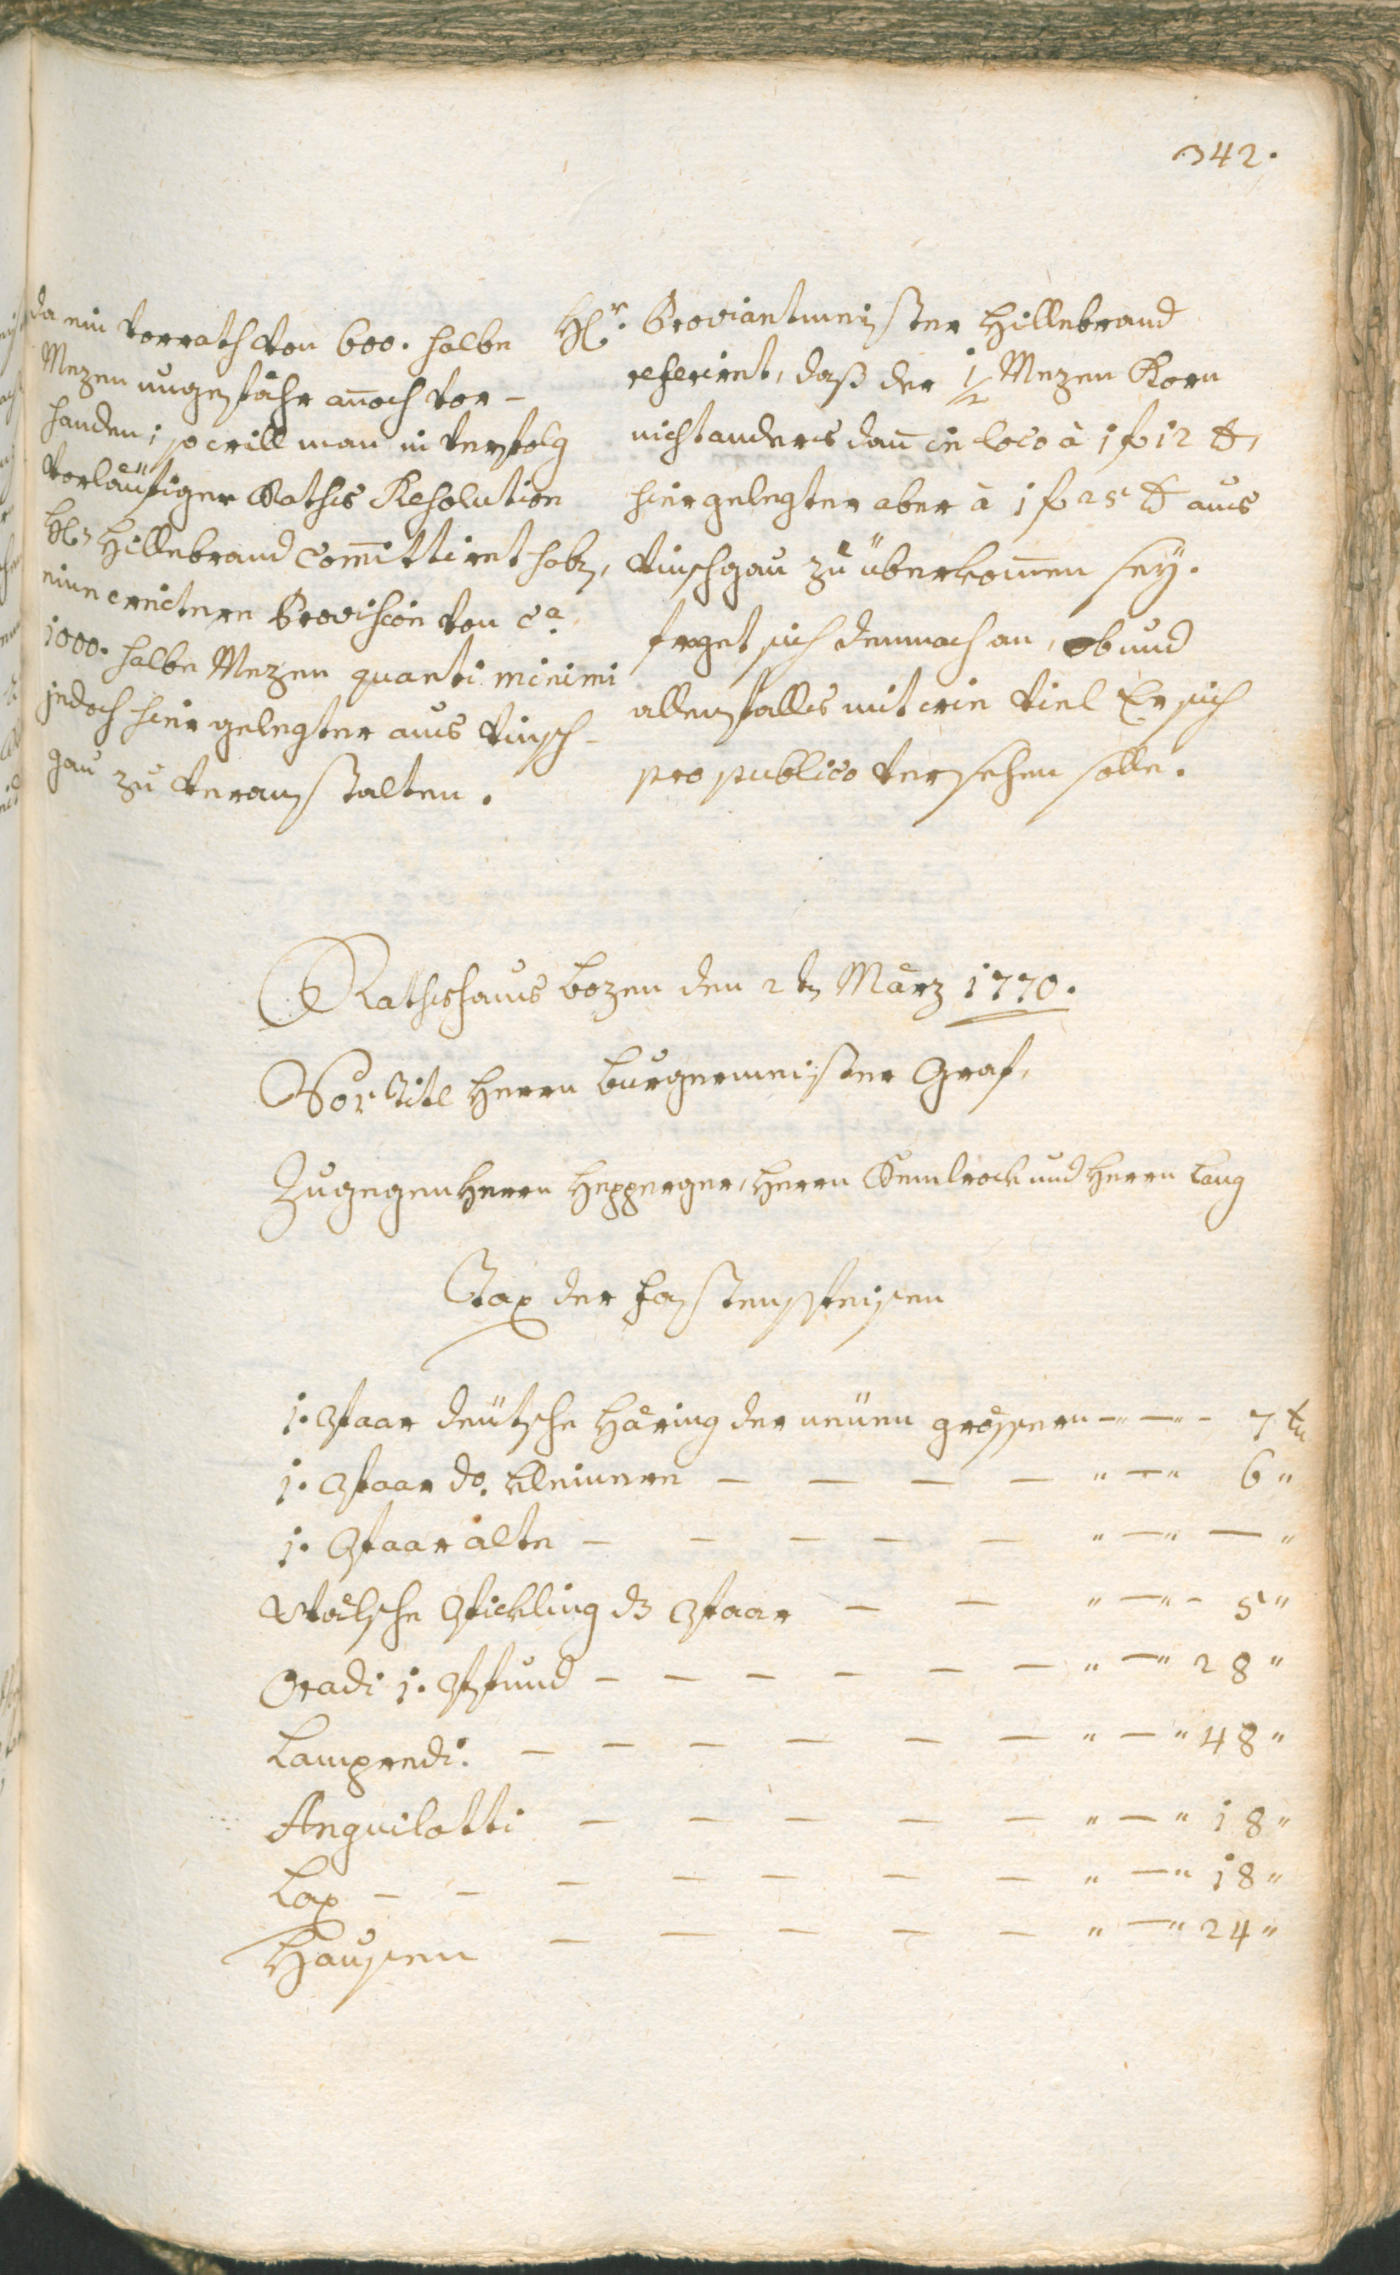 342.
da ein Vorrath von 600. halbe
Mezen ungefähr añoch vor-
handen; so will man in Verfolg
vorläüfiger Raths Resolution
H: Hillebrand com̃ittiret hab,
eine weitere Provision von Ca.
1000. halbe Mezen quanti minimi
jedoch hier gelegter aus Vinsch-
gau zu veranstalten.
Hr. Proviantmeister Hillebrand
referiret, daß der 1/2 Mezen Korn
nicht anders dañ in loco à 1 f 12 x,
hier gelegter aber à 1 f 25 x aus
Vinschgau zu überkom̃en seÿ.
fraget sich demnach an, ob und
allenfalls mit wie viel Er sich
pro publico versehen solle.
Rathshaus Bozen den 2 tn März 1770.
Vor Titl Herrn Burgermeister Graf,
Zugegen Herrn Hepperger, Herrn Kemlrock und Herrn Lang
Tax der Fastenspeisen
1. Paar deütsche Häring der neüen grössern - " - " - 7 xr
1. Paar do. kleinere - - - - " - " 6 "
1. Paar alte - - - - - " - " - "
Wälsche Pickling ds Paar - - " - " - 5 "
Oradi 1. Pfund - - - - - - " - " 28 "
Lampredi. - - - - - - " - " 48 "
Anguilotti - - - - - " - " 18 "
Lax - - - - - - - " - " 18 "
Hausen - - - - - " - " 24 "